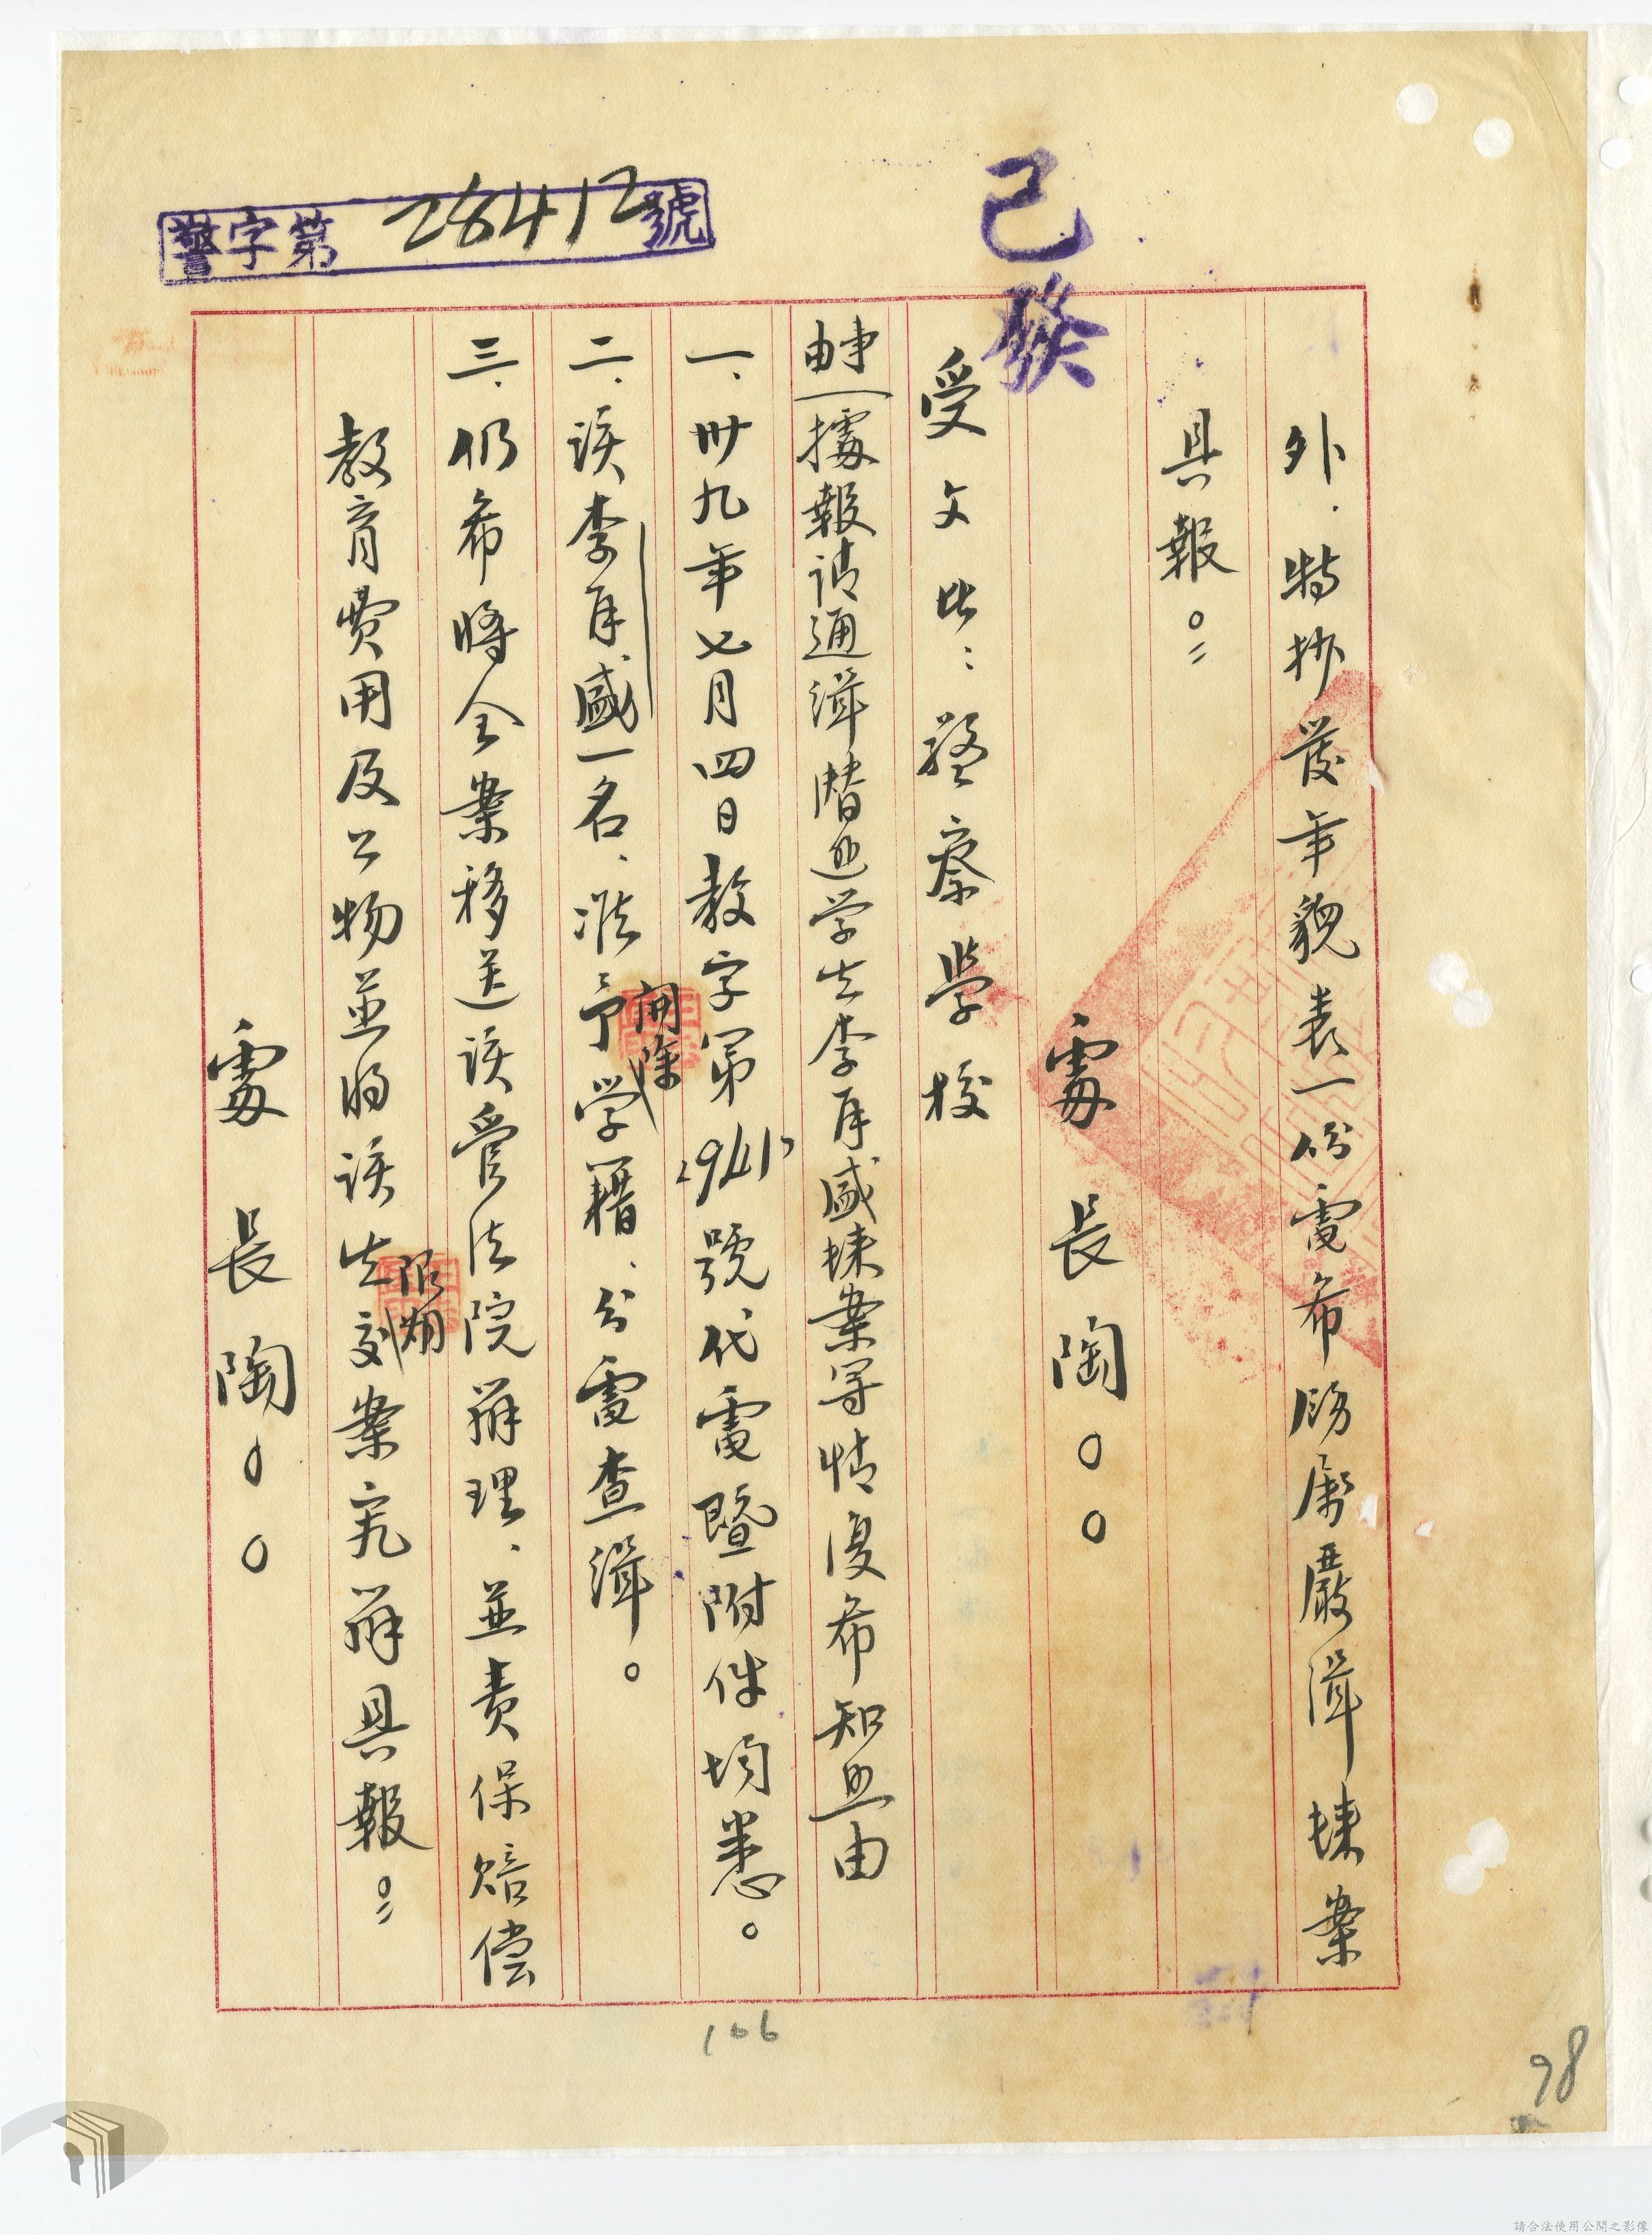 警字第28412號
已發
外．特抄發年貌表一份電希飭屬嚴緝悚案
具報。=
處長陶○○
受文者：警察學校
事由 據報請通緝潛逃學生李年盛悚案等情復希知照由
一、卅九年七月四日教字第2941號代電暨附件均悉。
二、該李年盛一名、准予開除學籍、分電查緝。
三、仍希將全案移送該管法院辦理、並責保賠償
教育費用及公物並將該生限期到案究辦具報。=
處長陶○○
106
98
請合法使用公開之影像